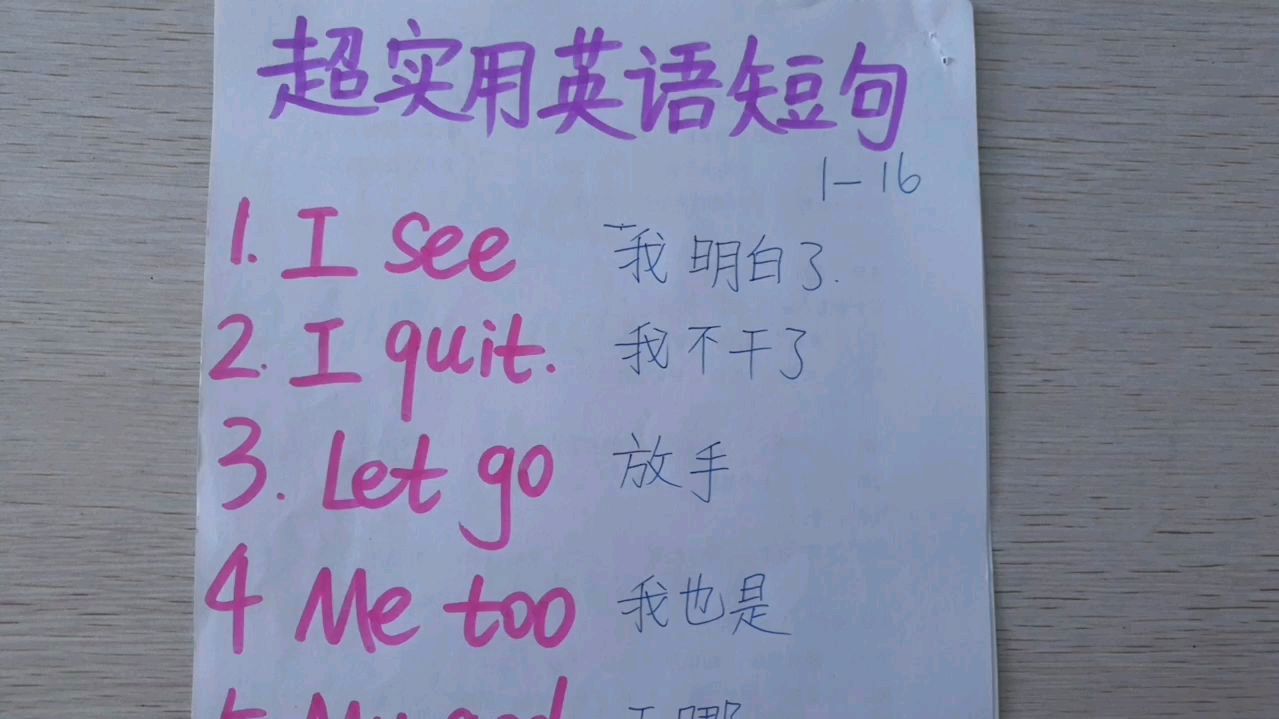 超实用英语短句
1-16
1. I see 我明白了.
2. I quit. 我不干了
3. Let go 放手
4 Me too 我也是